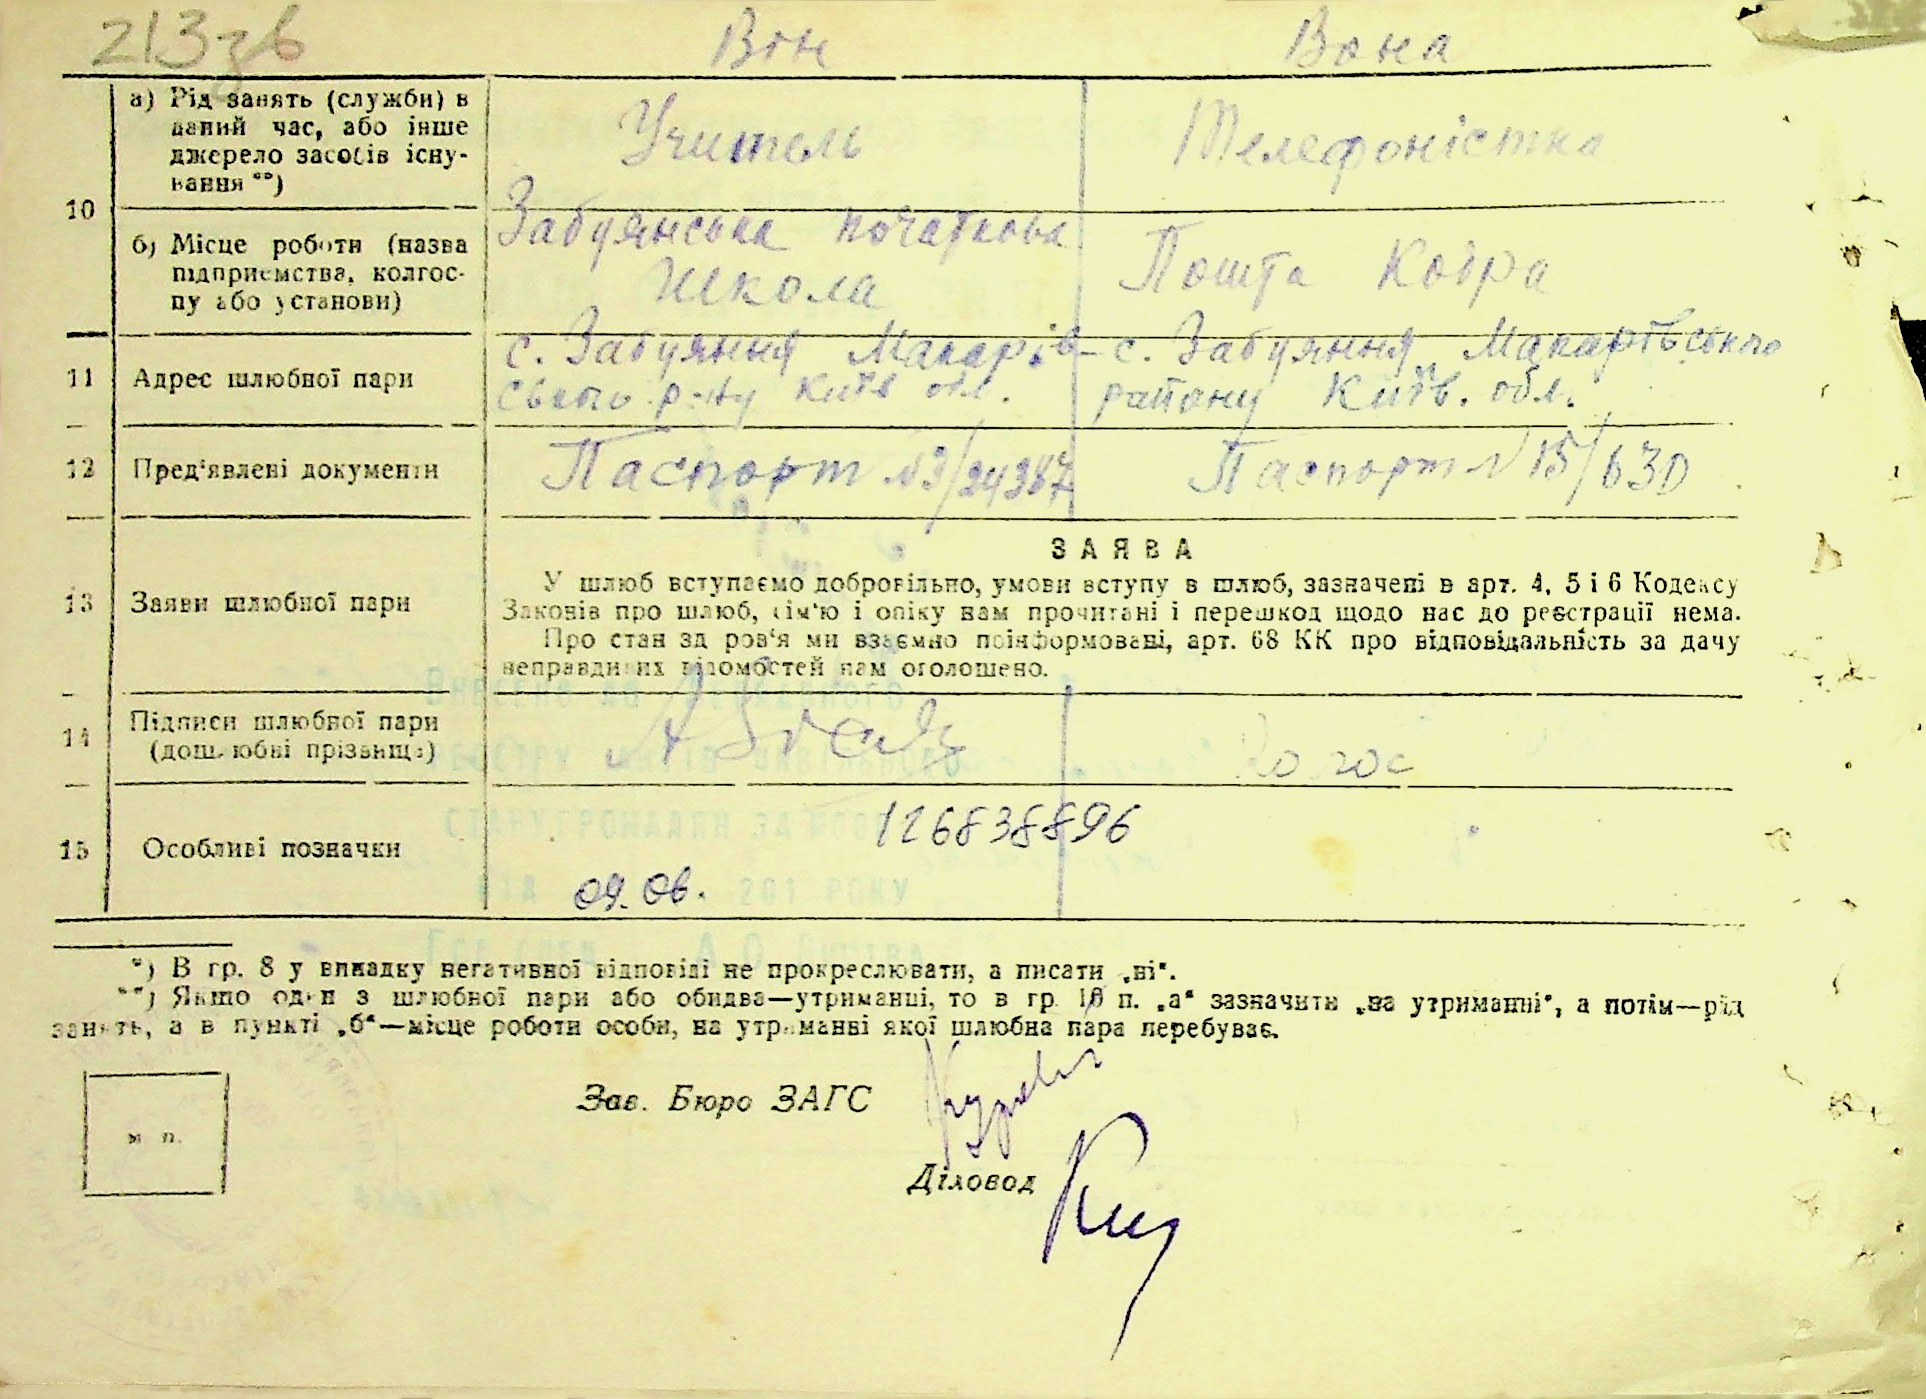 213зв
Він Вона
10
а) Рід занять (служби) в
даний час, або інше
джерело засобів існу-
вання **)
Учитель
Телефоністка
б) Місце роботи (назва
підприємства, колгос-
пу або установи)
Забуянська початкова
школа
Пошта Кодра
11 Адрес шлюбної пари
с. Забуяння Макарів-
ського р-ну Київ обл.
с. Забуяння Макарівського
району Київ. обл.
12 Пред'явлені документи
Паспорт № 3/24387
Паспорт № 15/630
13 Заяви шлюбної пари
ЗАЯВА
У шлюб вступаємо добровільно, умови вступу в шлюб, зазначені в арт. 4, 5 і 6 Кодексу
Законів про шлюб, сім'ю і опіку нам прочитані і перешкод щодо нас до реєстрації нема.
Про стан здоров'я ми взаємно поінформовані, арт. 68 КК про відповідальність за дачу
неправдивих відомостей нам оголошено.
14 Підписи шлюбної пари
(дошлюбні прізвища)
15 Особливі позначки
126838896
09.06.
*) В гр. 8 у випадку негативної відповіді не прокреслювати, а писати „ні“.
**) Якщо один з шлюбної пари або обидва—утриманці, то в гр. 10 п. „а“ зазначити „на утриманні“, а потім—рід
занять, а в пункті „б“—місце роботи особи, на утриманні якої шлюбна пара перебуває.
м. п.
Зав. Бюро ЗАГС
Діловод